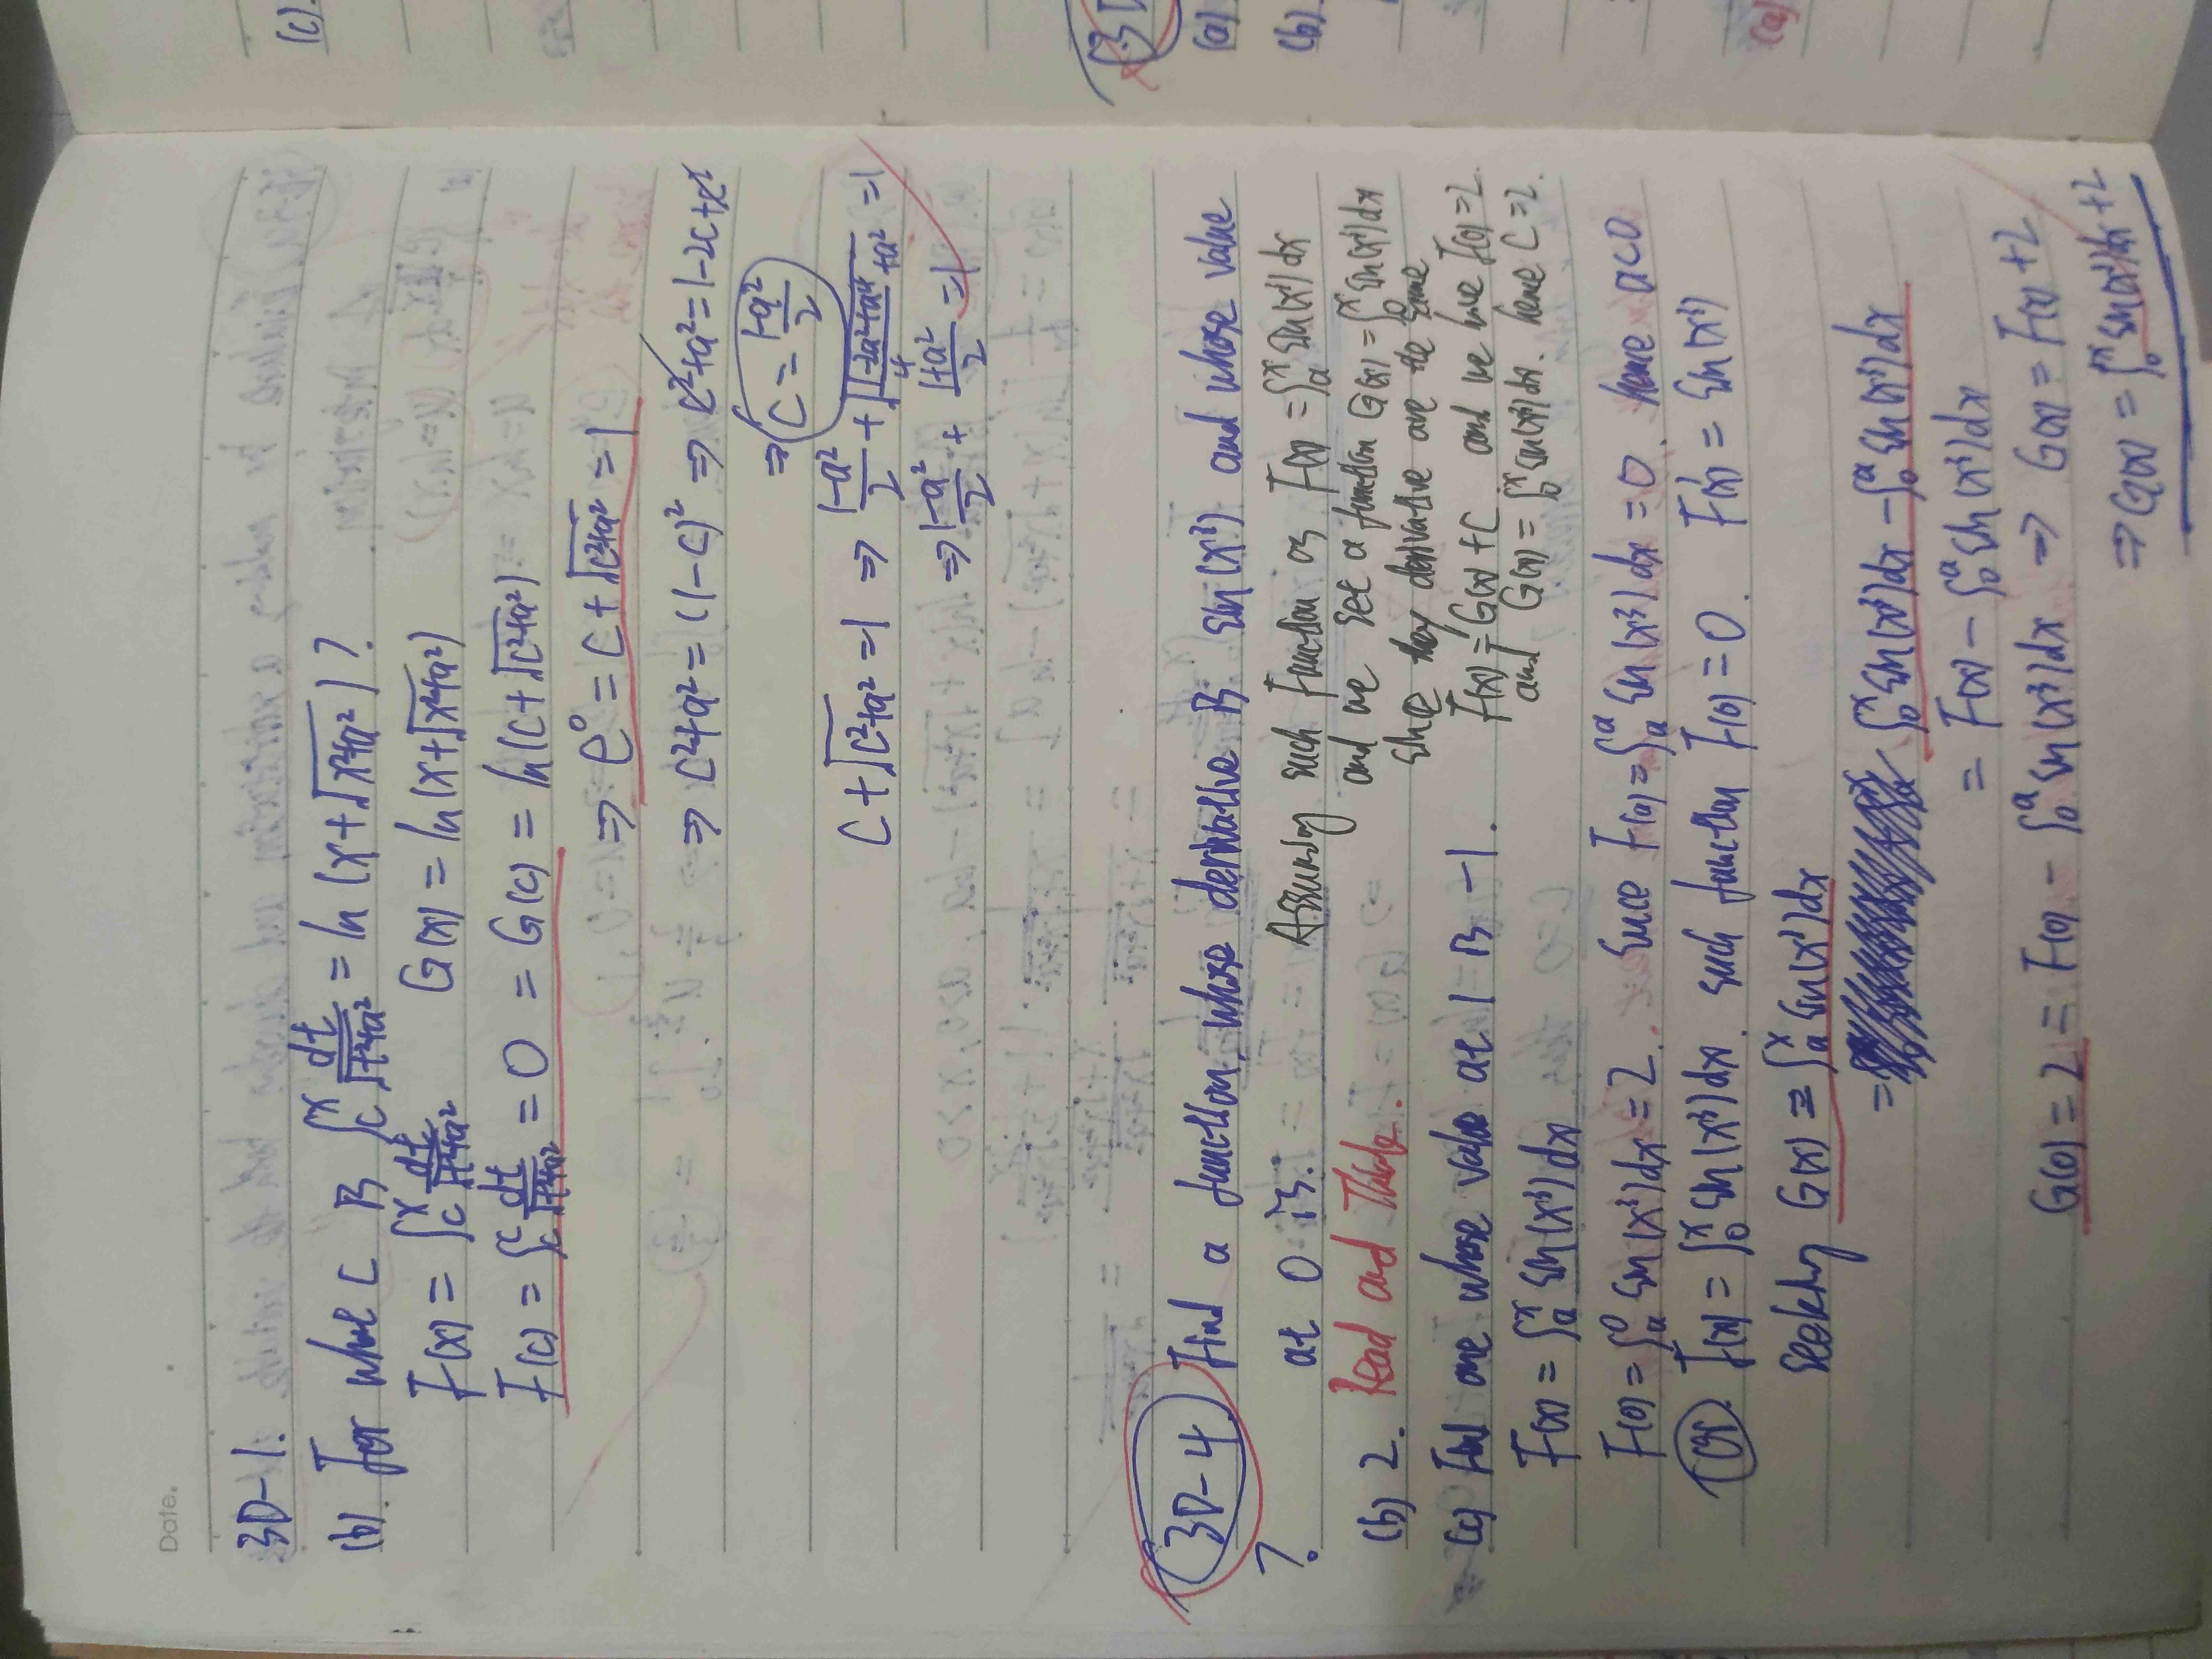 Date.
3D-1.
(b). For what c is ∫_c^x dt/√(t²+a²) = ln(x+√(x²+a²))?
F(x) = ∫_c^x dt/√(t²+a²)   G(x) = ln(x+√(x²+a²))
F(c) = ∫_c^c dt/√(t²+a²) = 0 = G(c) = ln(c+√(c²+a²))
⇒ e⁰ = c+√(c²+a²) = 1
⇒ c²+a² = (1-c)² ⇒ c²+a² = 1-2c+c²
⇒ c = (1-a²)/2
c+√(c²+a²) = 1 ⇒ (1-a²)/2 + √((1-2a²+a⁴)/4 +a²) = 1
⇒ (1-a²)/2 + (1+a²)/2 = 1
3D-4 Find a function whose derivative is sin(x³) and whose value
at 0 is. Assuming such function as F(x) = ∫_a^x sin(x³)dx
?
and we set a function G(x) = ∫_0^x sin(x³)dx
(b) 2. Read and Think.
since they derivative are the same
F(x) = G(x)+C and we have F(0)=2.
and G(x) = ∫_0^x sin(x³)dx. hence C=2.
(c) Find one whose value at 1 is -1.
F(x) = ∫_a^x sin(x³)dx
F(0) = ∫_a^0 sin(x³)dx = 2. since F(a) = ∫_a^a sin(x³)dx = 0. hence a<0
F(x) = ∫_0^x sin(x³)dx. such function F(0) = 0. F'(x) = sin(x³)
seeking G(x) = ∫_a^x sin(x³)dx
= ∫_0^x sin(x³)dx - ∫_0^a sin(x³)dx
= F(x) - ∫_0^a sin(x³)dx
G(0) = 2 = F(0) - ∫_0^a sin(x³)dx ⇒ G(x) = F(x) + 2
⇒ G(x) = ∫_0^x sin(x³)dx + 2
(c).
(a)
(b)
(a)